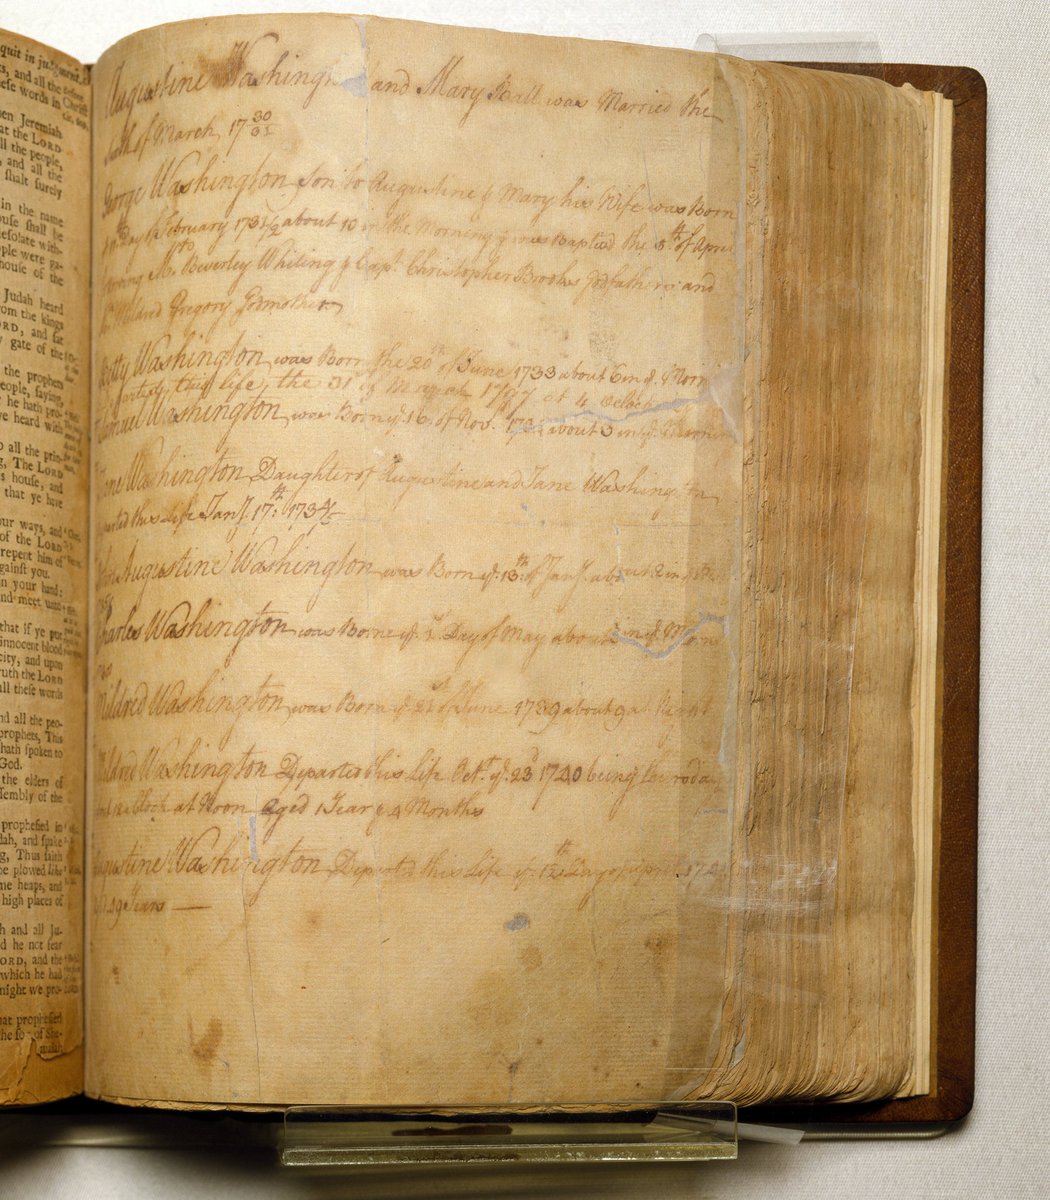 quit in judgment.
s, and all the
ese words in
en Jeremiah
at the LORD
ll the people,
, and all the
shalt surely
in the name
ouse shall be
desolate with-
ople were ga-
house of the
Judah heard
rom the kings
ORD, and sat
gate of the
the prophets
eople, saying,
he hath pro-
ve heard with
o all the prin-
g, The LORD
s house, and
that ye have
our ways, and
of the LORD
repent him of
gainst you.
n your hand:
nd meet unto
that if ye put
innocent blood
city, and upon
ruth the LORD
all these words
nd all the peo-
prophets, This
hath spoken to
God.
the elders of
ssembly of the
prophesied in
dah, and spake
g, Thus saith
be plowed like
me heaps, and
high places of
h and all Ju-
d he not fear
ORD, and the
which he had
night we pro-
hat prophesied
the son of She-
maiah
Augustine Washington and Mary Ball was Married the
Sixth of March 17 30/31
George Washington Son to Augustine & Mary his Wife was Born
Day of February 1731/2 about 10 in the Morning & was Baptised the 5th of April
following Mr. Beverley Whiting & Capt. Christopher Brooks Godfathers and
Mildred Gregory Godmother
Betty Washington was Born the 20th of June 1733 about 6 in ye Morn
departed this life the 31 of March 1797 at 4 oClock
Samuel Washington was Born ye 16 of Nov. 1734 about 3 in ye Morning
Jane Washington Daughter of Augustine and Jane Washington
departed this Life Jan. 17th 1734/5
John Augustine Washington was Born ye 13th of Jan. about 2 in ye
Charles Washington was Borne ye Day of May about 3 in ye Morn
Mildred Washington was Born ye 21st of June 1739 about 9 at Night
Mildred Washington Departed this Life Oct. ye 23d 1740 being Thursday
about 12 a Clock at Noon Aged 1 Year & 4 Months
Augustine Washington Departed this Life ye 12th Day of April 174
Aged 49 Years